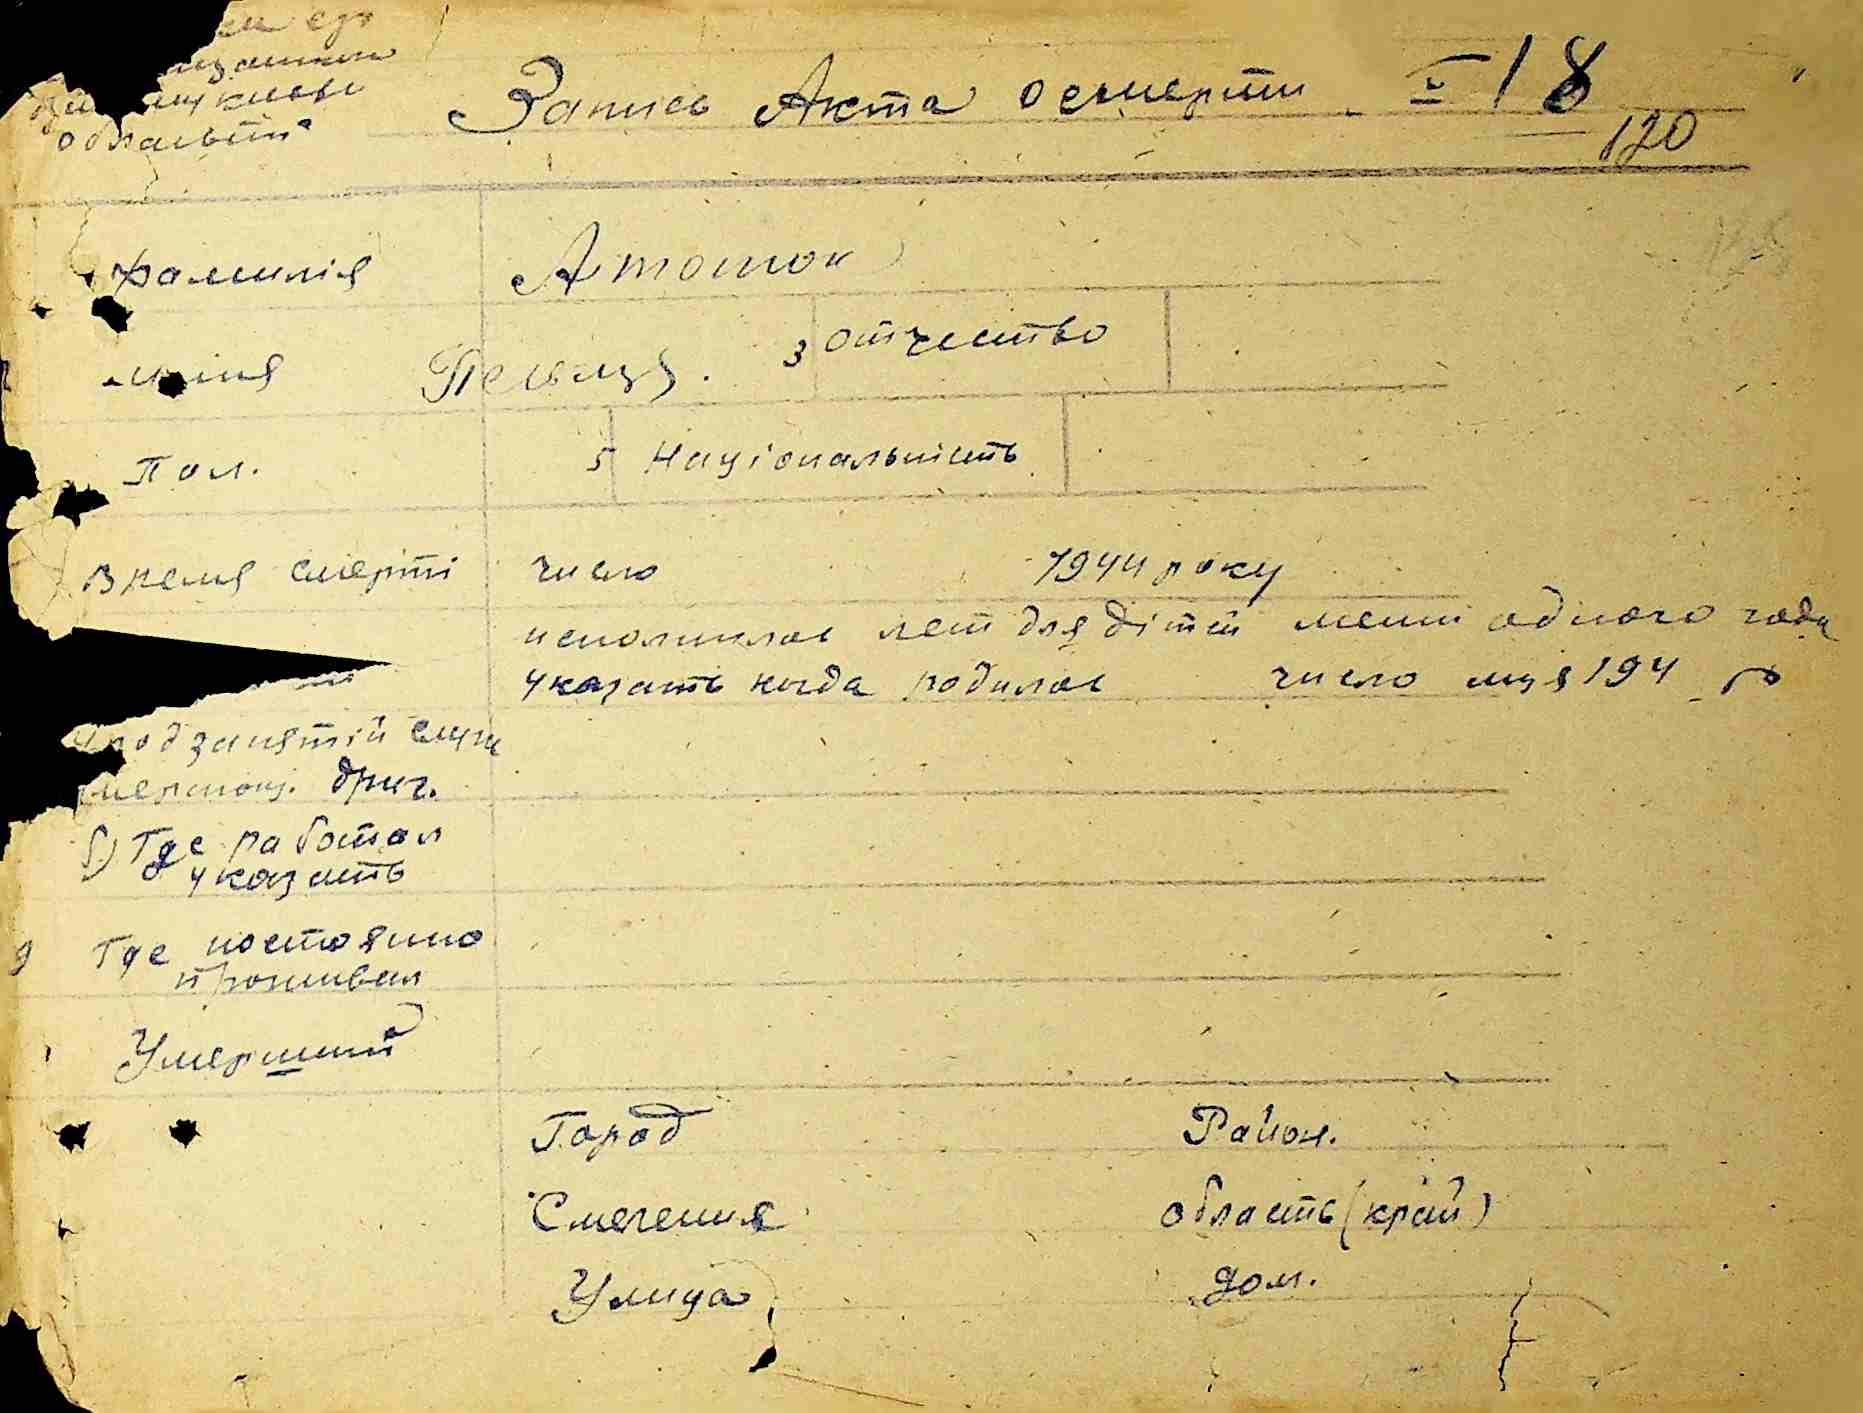 Запись Акта о смерти № 18
120
Фамилія
имя
3 отчество
Пол.
5 Національність
Время смерті число 1944 року
исполнилос лет для дітей менш одного года
указать когда родилос число мця 194 г
род занятій служ
дриг.
б) Где работал
указать
9 Где постояно
проживал
Умерший
Город Район.
область (край)
Улица дом.